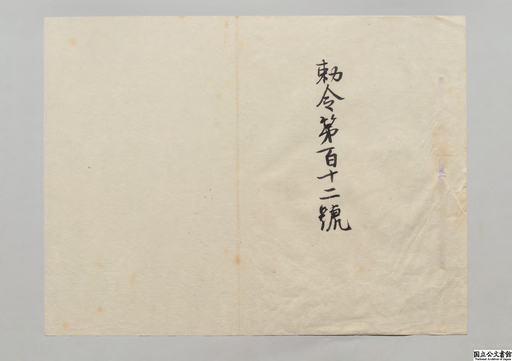 勅令第百十二號
国立公文書館
National Archives of Japan